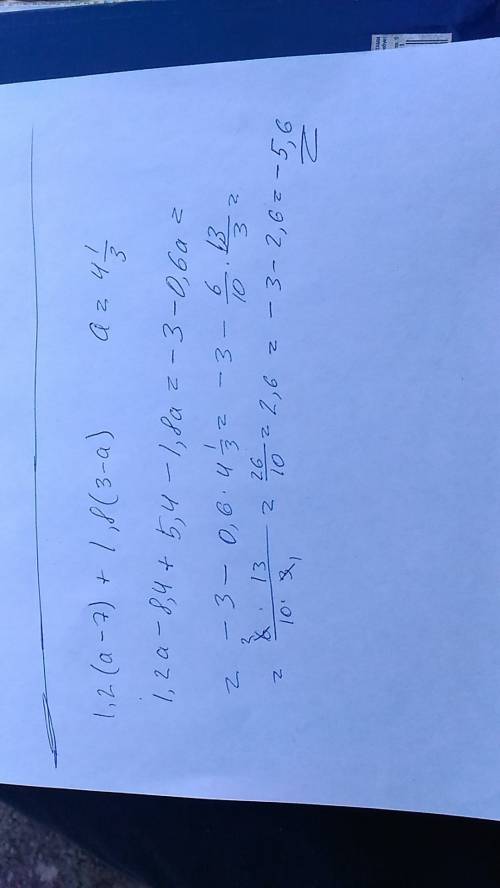 1,2(a-7)+1,8(3-a) a=4 1/3
1,2a-8,4+5,4-1,8a=-3-0,6a=
= -3-0,6·4 1/3= -3- 6/10 · 13/3 =
= 6 2 · 13 / 10 · 3 1 = 26/10 =2,6 = -3-2,6=-5,6